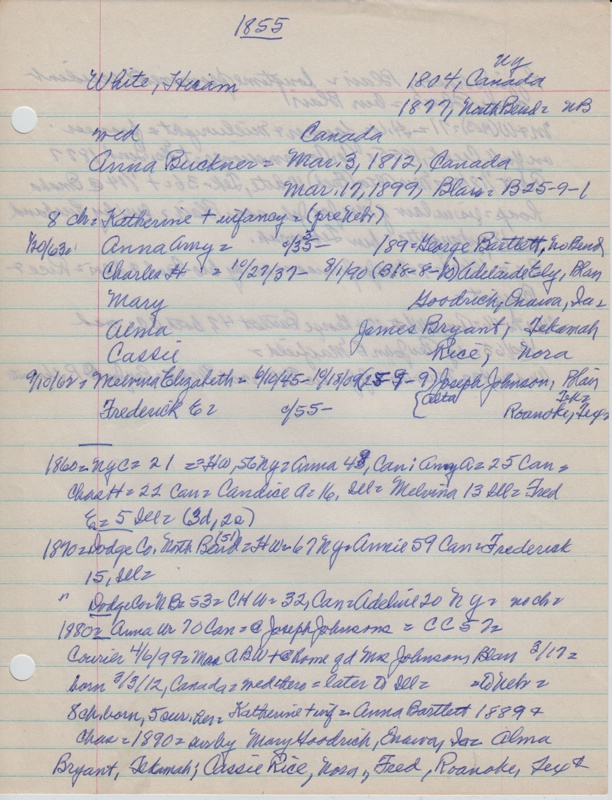 1855
NY
White, Hiram 1804, Canada
1877, North Bend = NB
med Canada
Anna Buckner = Mar. 3, 1812, Canada
Mar. 17, 1899, Blair = B25-9-1
8 ch = Katherine + infancy = (preNebr)
1/20/63 = Anna Amy = c/35- /89 = George Bartlett, No Bend
Charles H = 10/27/37 - 8/1/90 (B18-8-10) Adelaide Ely, Blair
Mary Goodrich, Onawa, Ia =
Alma James Bryant, Tekamah
Cassie Rice, Nora
9/10/62 = Melvina Elizabeth = 6/10/45 - (25-9-9) Joseph Johnson, Blair
Frederick E = c/55- Roanoke, Tex =
1860 = NYC = 21 = HW, 56 NY = Anna 48, Can; Amy A = 25 Can =
Chas H = 22 Can = Candice A = 16, Ill = Melvina 13 Ill = Fred
E = 5 Ill = (3d, 2s)
1870 = Dodge Co, North Bend (51) = HW = 67 NY = Annie 59 Can = Frederick
15, Ill =
" Dodge Co = NB = 53 = CHW = 32, Can = Adeline 20 NY = no ch =
1880 = Anna W 70 Can = @ Joseph Johnsons = CC 57 =
Courier 4/6/99 = Mrs ABW + @ home of d Mrs Johnson, Blair 3/17 =
born 3/3/12, Canada = med there = later to Ill = = to Nebr =
8 ch born, 5 sur. her = Katherine + inf = Anna Bartlett 1889 +
Chas = 1890 = sur by Mary Goodrich, Onawa, Ia = Alma
Bryant, Tekamah; Cassie Rice, Nora, Fred, Roanoke, Tex +